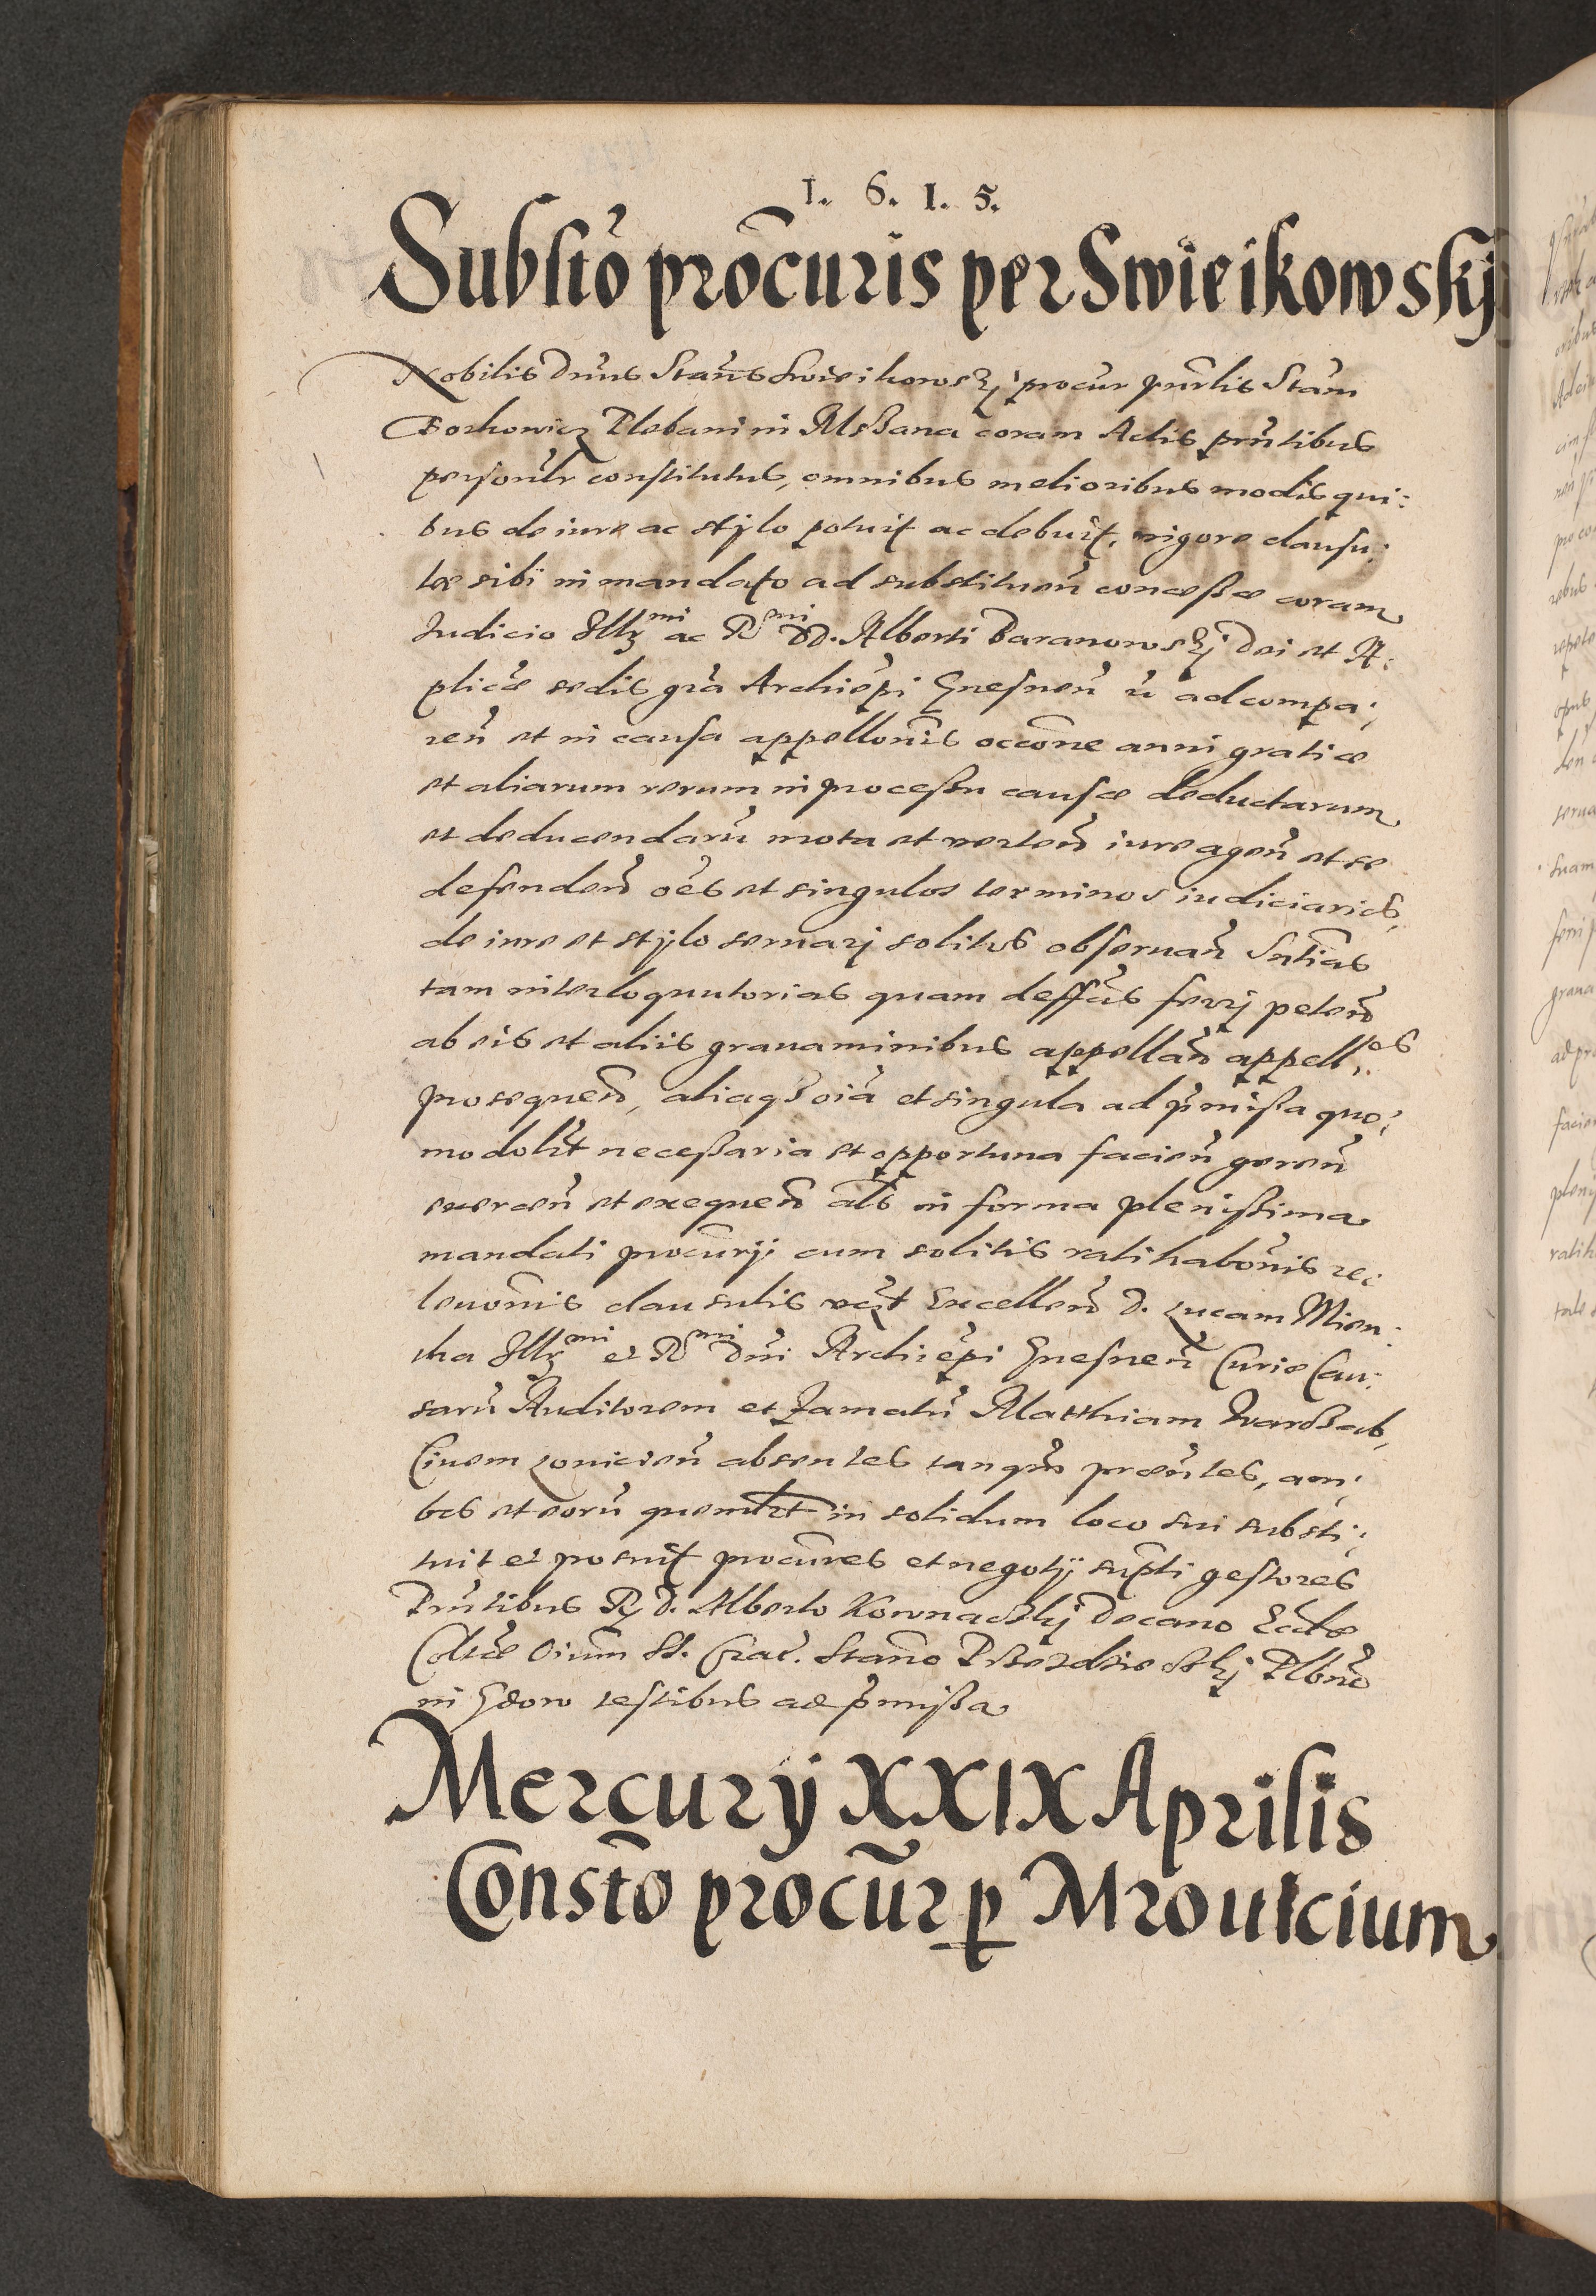 1. 6. 1. 5.
Substõ prõcuris per Swieikowskj
Nobilis Dnũs Stañs Swieikowskj procur pnrlis Stañ
Borkowicz Plebani in Msßana coram Actis prñtibus
personlr constitutus, omnibus melioribus modis qui:
bus de iure ac stylo potuit ac debuit, vigore clausu:
læ sibi in mandato ad substituen̄ concessæ coram
Iudicio Illr̃mi ac Rmi DD. Alberti Baranowskj Dei et A:
plicæ sedis gr̃a Archiep̃i Gnesnen̄ ũ ad compa:
ren̄ et in causa appellon̄is occōne anni gratiæ
et aliarum rerum in processu causæ deductarum
et deducendarũ mota et verten̄ iure agen̄ et se
defenden̄ oẽs et singulos terminos iudiciarios,
de iure et stylo seruarj solitos obseruan̄ Sñtias
tam interloquutorias quam deff̃as ferrj peten̄
ab eis et aliis grauaminibus appellan̄ appell:es
prosequen̄, aliaq̃ oĩa et singula ad p̃missa quo:
modolt̃ necessaria et opportuna facien̄ geren̄
exercen̄ et exequen̄ als̃ in forma plenissima
mandati procurij cum solitis ratihabon̄is re:
leuon̄is clausulis Excellen̄ D. Lucam Mien:
tha Illr̃mi et Rmi Dñi Archiep̃i Gnesnen̄ Curiæ Cau:
sarũ Auditorem et Famatũ Matthiam
Ciuem Louicien̄ absentes tanq̃ præñtes, am:
bos et eorũ quemlt̃ in solidum loco sui substi:
tuit et posuit procũres et negotij sup̃ti gestores
Prñtibus R D. Alberto Kownackj Decano Eccl̃æ
Coll̃tæ Oĩum SS. Crac̃. Stañ Pll̃bno
in Gdow testibus ad p̃missa
Mercurÿ XXIX Aprilis
Constõ prõcũr p Mrouicium